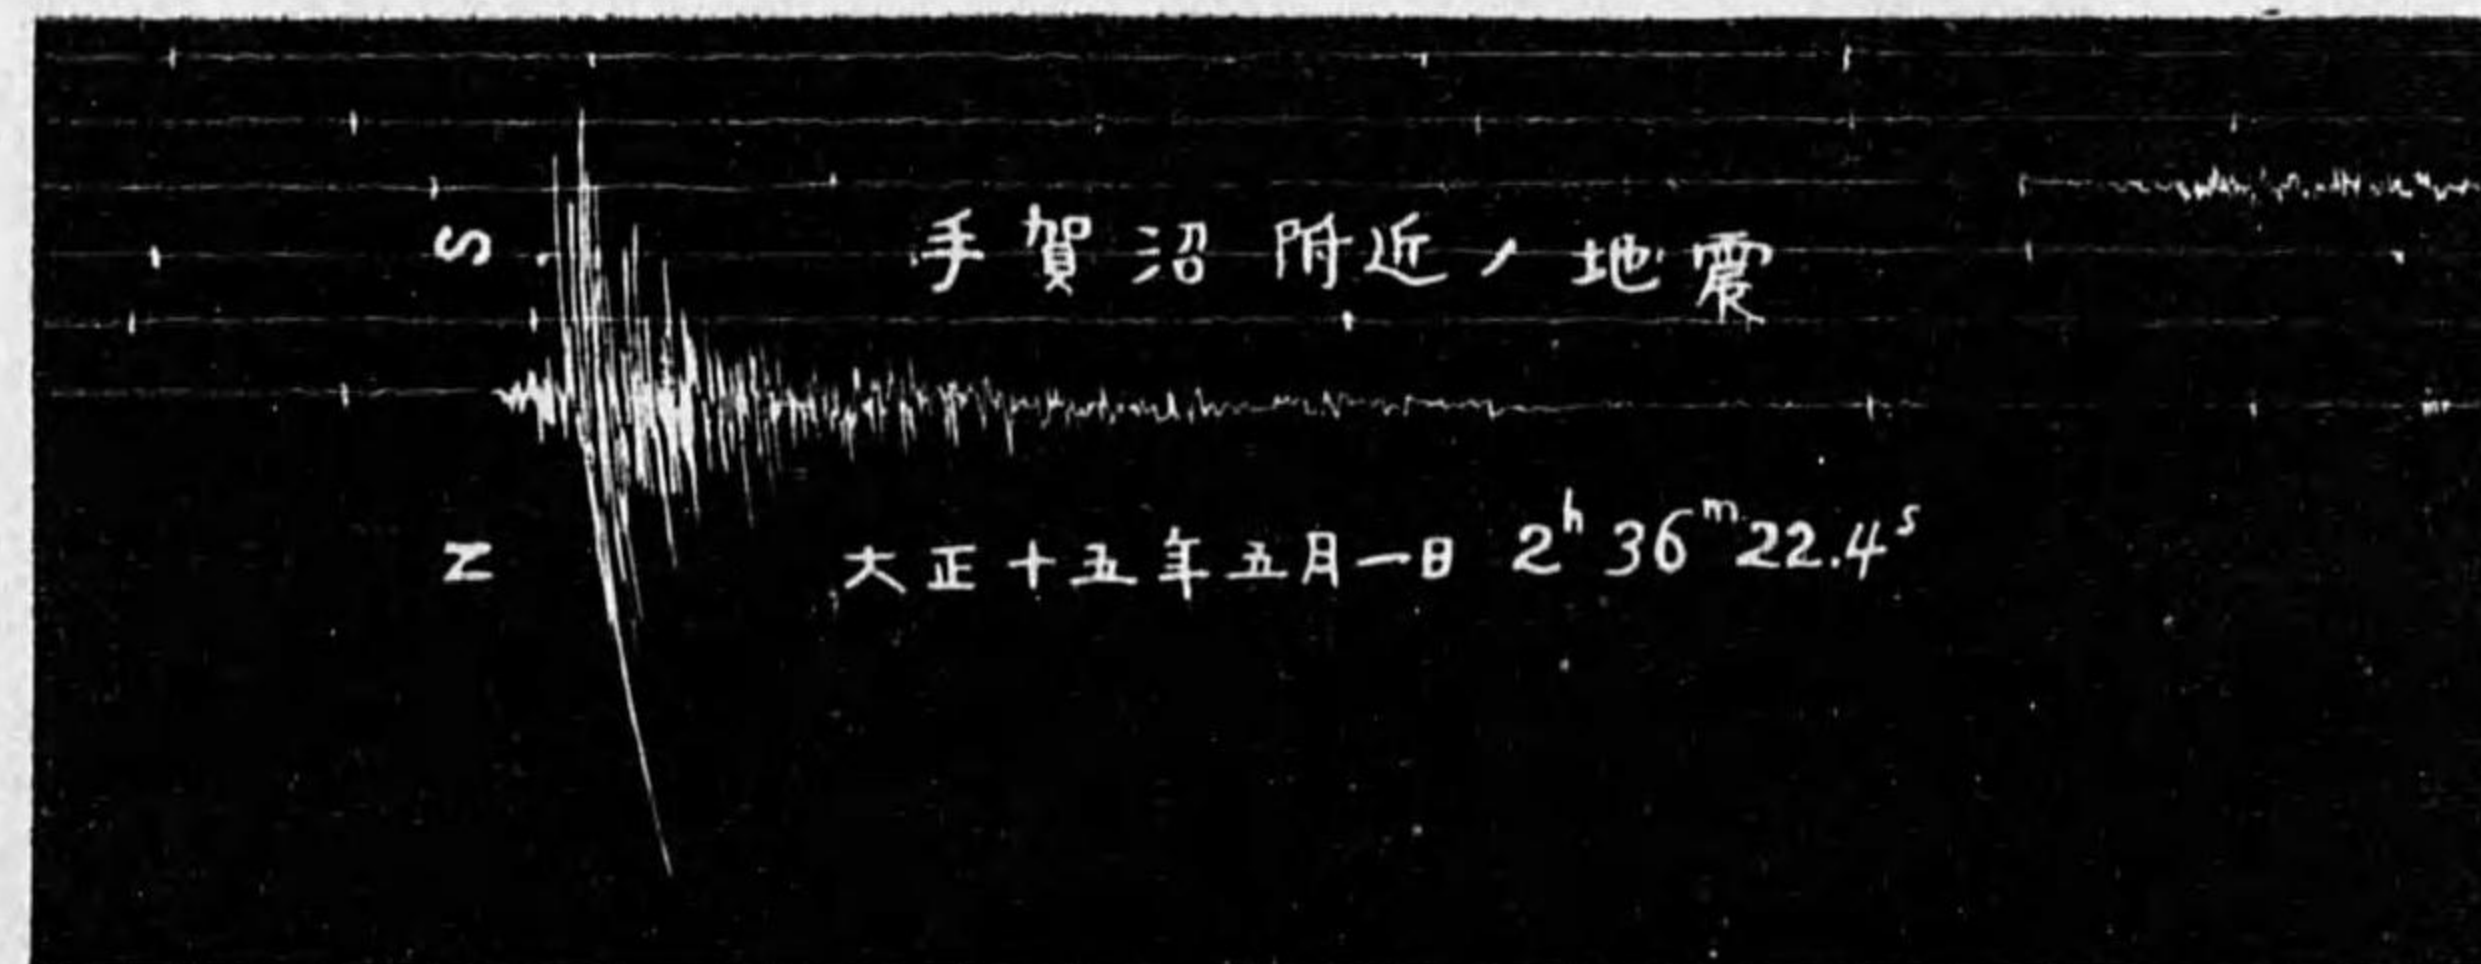 S
手賀沼附近ノ地震
N
大正十五年五月一日 2h 36m 22.4s